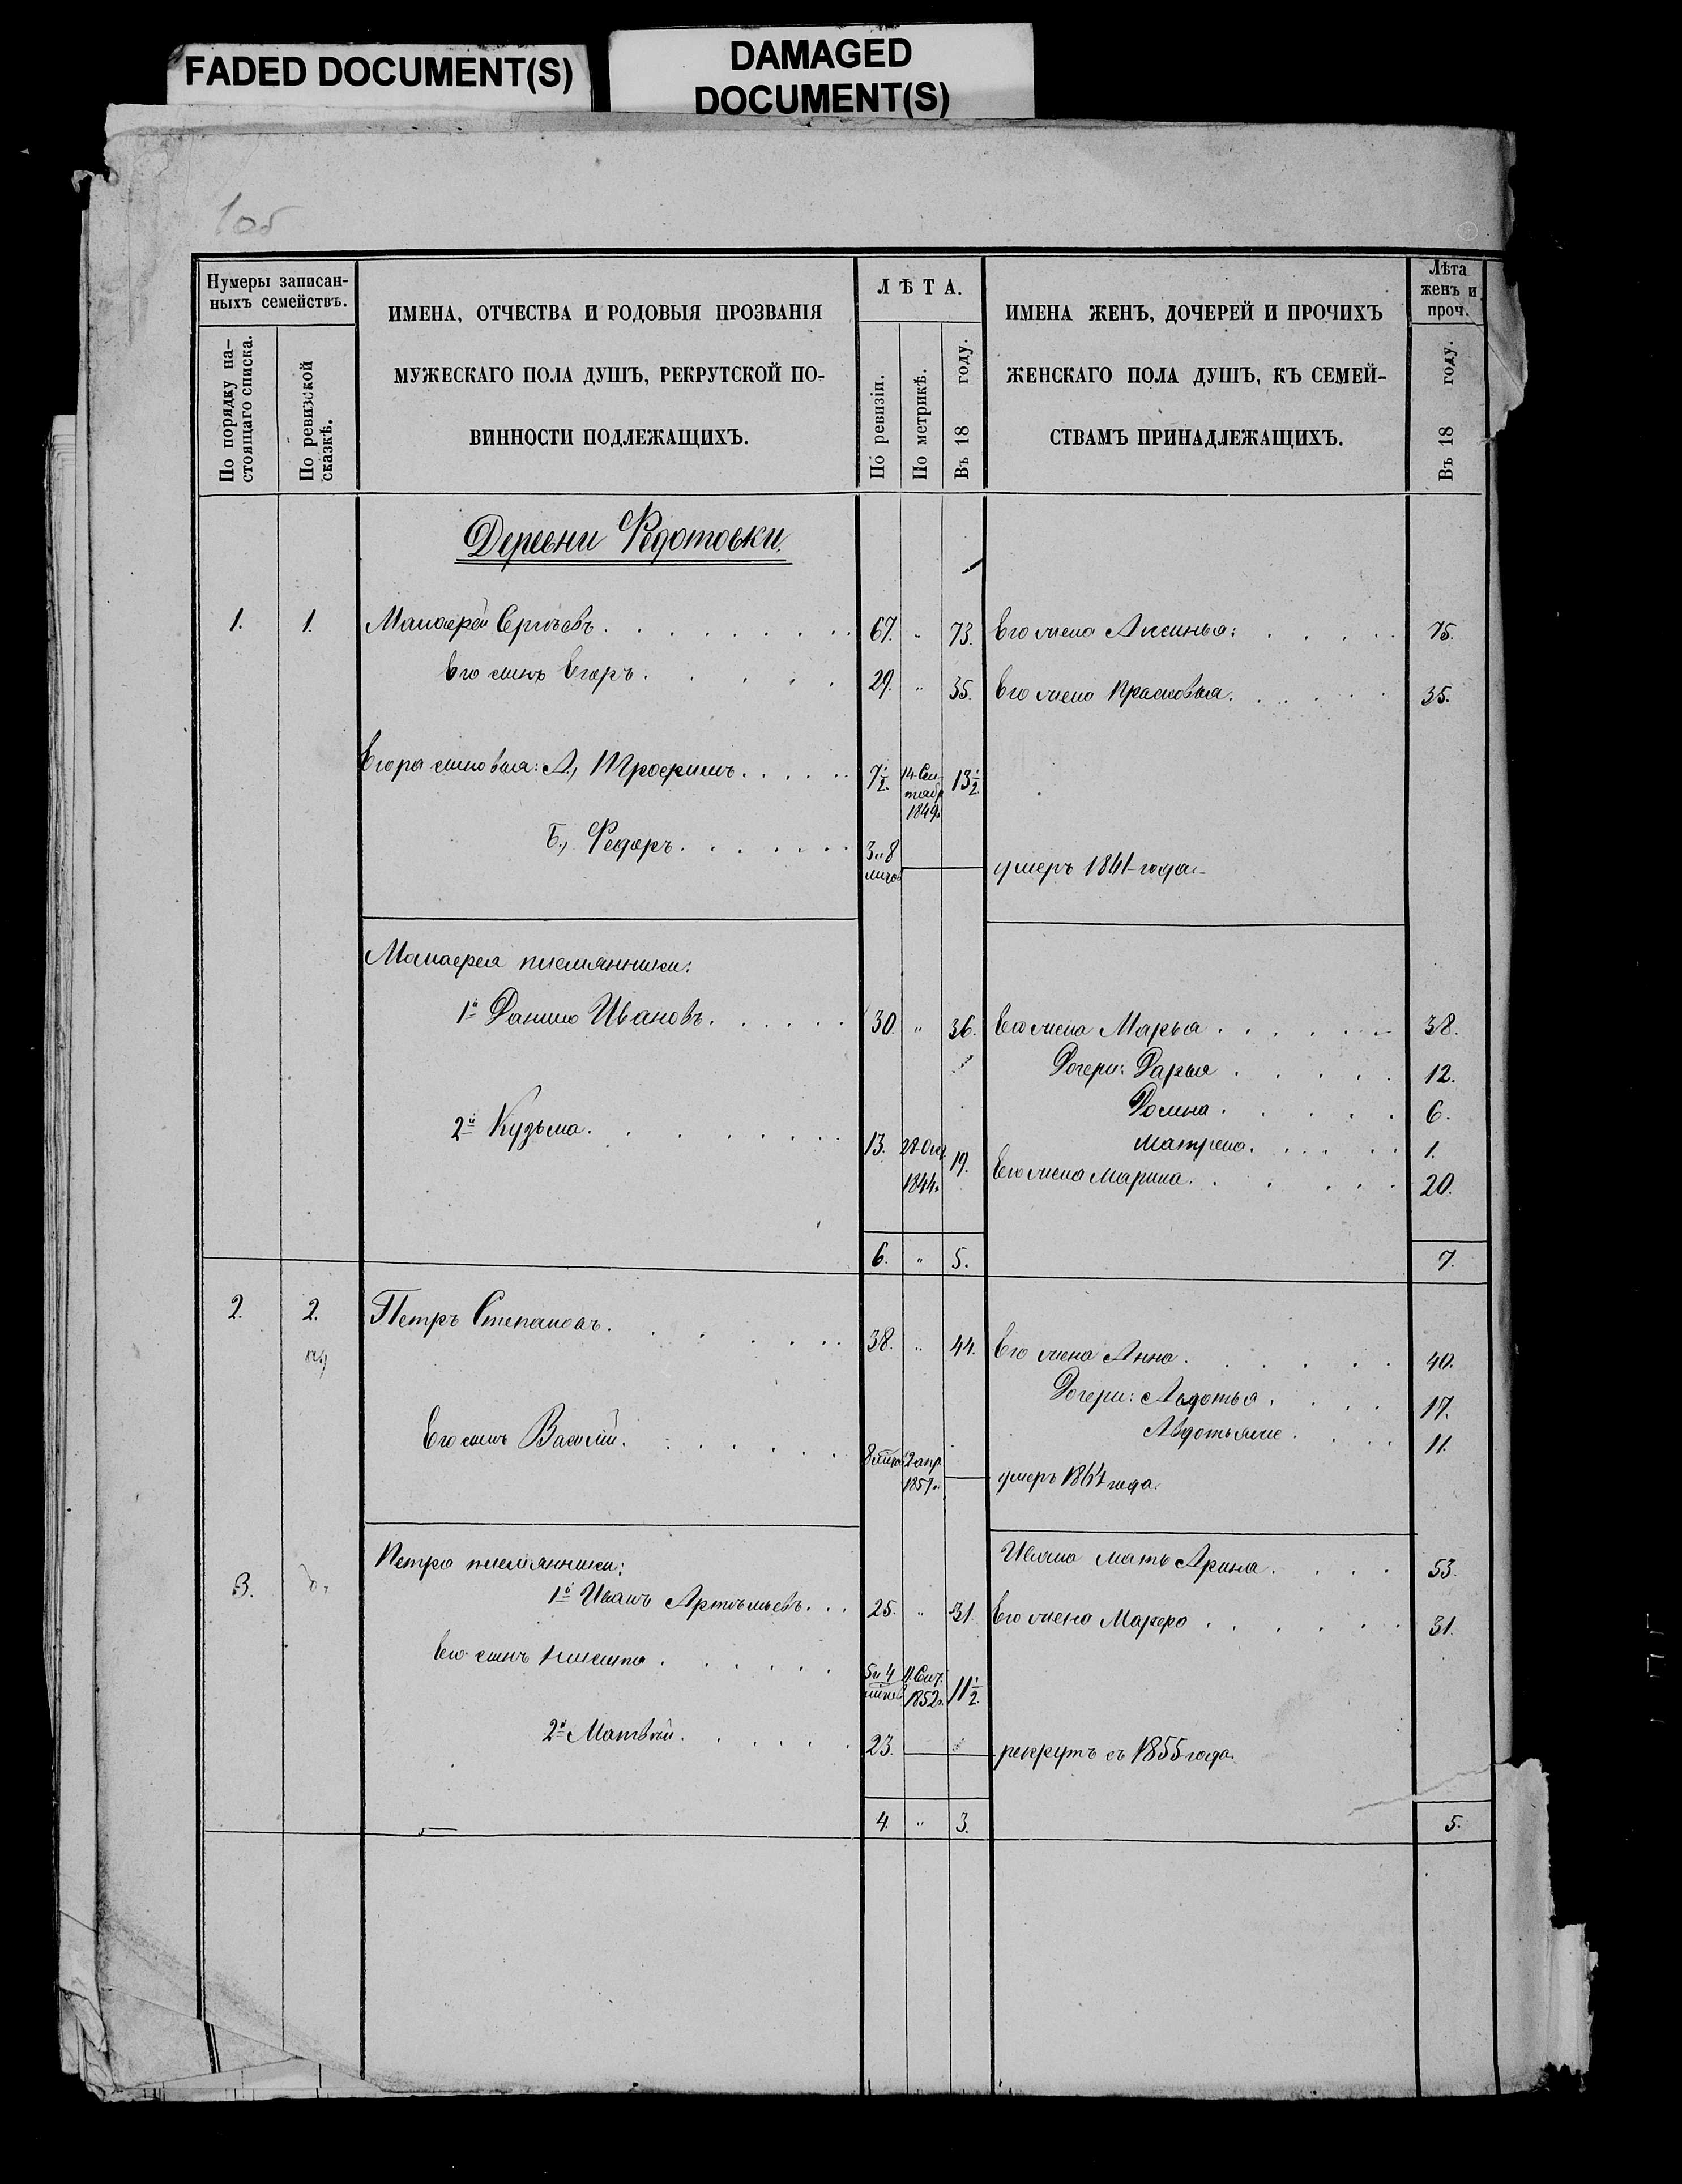 FADED DOCUMENT(S)
DAMAGED
DOCUMENT(S)
1об
Нумеры записан-
ныхъ семействъ.
По порядку на-
стоящаго списка.
По ревизской
сказкѣ.
ИМЕНА, ОТЧЕСТВА И РОДОВЫЯ ПРОЗВАНІЯ
МУЖЕСКАГО ПОЛА ДУШЪ, РЕКРУТСКОЙ ПО-
ВИННОСТИ ПОДЛЕЖАЩИХЪ.
ЛѢТА.
По ревизіи.
По метрикѣ.
Въ 18 году.
ИМЕНА ЖЕНЪ, ДОЧЕРЕЙ И ПРОЧИХЪ
ЖЕНСКАГО ПОЛА ДУШЪ, КЪ СЕМЕЙ-
СТВАМЪ ПРИНАДЛЕЖАЩИХЪ.
Лѣта
женъ и
проч.
Въ 18 году.
Деревни Федотовки.
1. 1. Манаефей Сергѣевъ 67. " 73. Его жена Аксинья: 75.
Его сынъ Егоръ 29. " 35. Его жена Прасковья 35.
Егора сыновья: А., Трофимъ 7½ 14 Сен- 13½
тябр
1849.
Б., Федоръ 3 и 8 умеръ 1861 года.
Манаефея племянники:
1й Данило Ивановъ 30. " 36. Его жена Марья 38.
Дочери: Дарья 12.
Домна 6.
Матрена 1.
2й Кузьма 13. 28 Окт. 19. Его жена Марина 20.
1844.
6. " 5. 7.
2. 2. Петръ Степановъ 38. " 44. Его жена Анна 40.
Дочери: Авдотья 17.
Авдотья же 11.
Его сынъ Василій 8 2 апр. умеръ 1864 года.
1857.
Петра племянники: Ивана мать Арина 53.
3. 1й Иванъ Артемьевъ 25. " 31 Его жена Марфа 31.
Его сынъ Никита 5 и 4 11 Сент. 11½
1852.
2й Матвѣй 23. рекрутъ съ 1855 года.
4. " 3. 5.